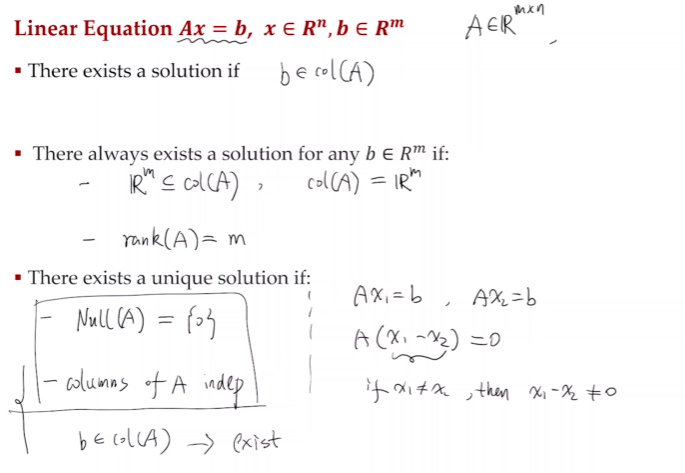 Linear Equation Ax = b, x ∈ Rⁿ, b ∈ Rᵐ
A ∈ ℝᵐˣⁿ,
▪ There exists a solution if b ∈ col(A)
▪ There always exists a solution for any b ∈ Rᵐ if:
- ℝᵐ ⊆ col(A), col(A) = ℝᵐ
- rank(A) = m
▪ There exists a unique solution if:
- Null(A) = {0}
- columns of A indep
b ∈ col(A) → exist
Ax₁ = b, Ax₂ = b
A(x₁ - x₂) = 0
if x₁ ≠ x₂, then x₁ - x₂ ≠ 0